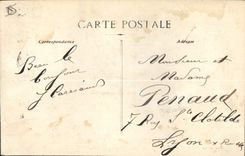 CARTE POSTALE
Correspondance
Adresse
Bien le
bonjour
Monsieur et
Madame
Penaud
7 Rue Ste Clotilde
Lyon